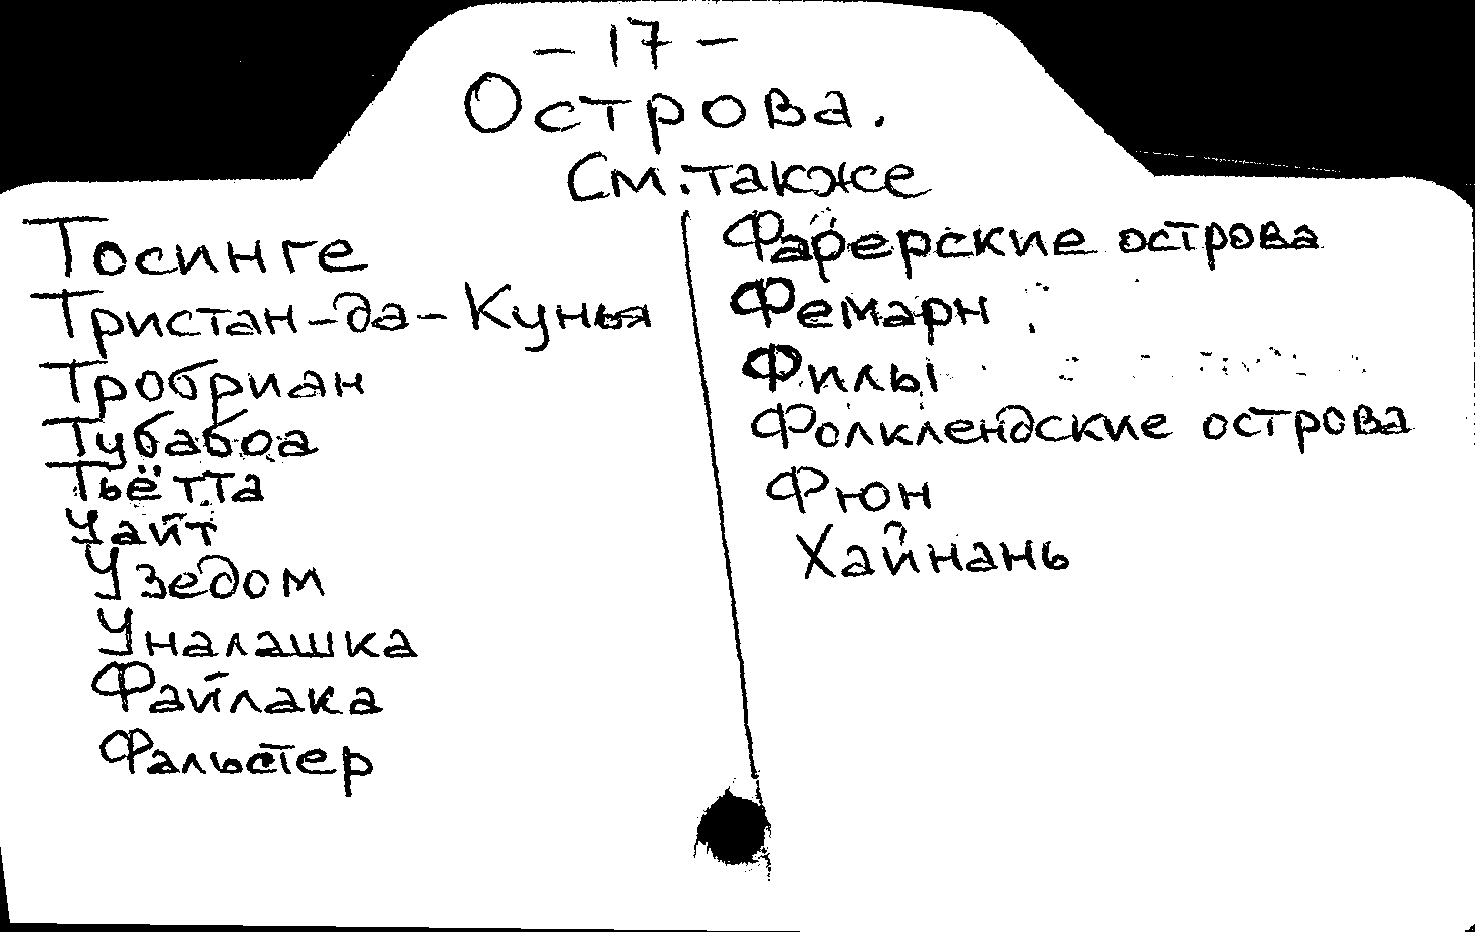 - 17 -
Острова.
См. также
Тосинге
Тристан-да-Кунья
Тробриан
Тубабоа
Тьётта
Уайт
Узедом
Уналашка
Файлака
Фальстер
Фарерские острова
Фемарн
Филы
Фолклендские острова
Фюн
Хайнань